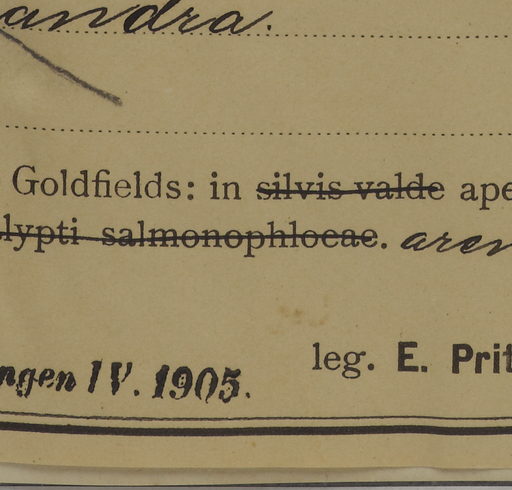 andra.
Goldfields: in silvis valde ape
lypti salmonophloeae. aren
leg. E. Prit
ngen IV. 1905.